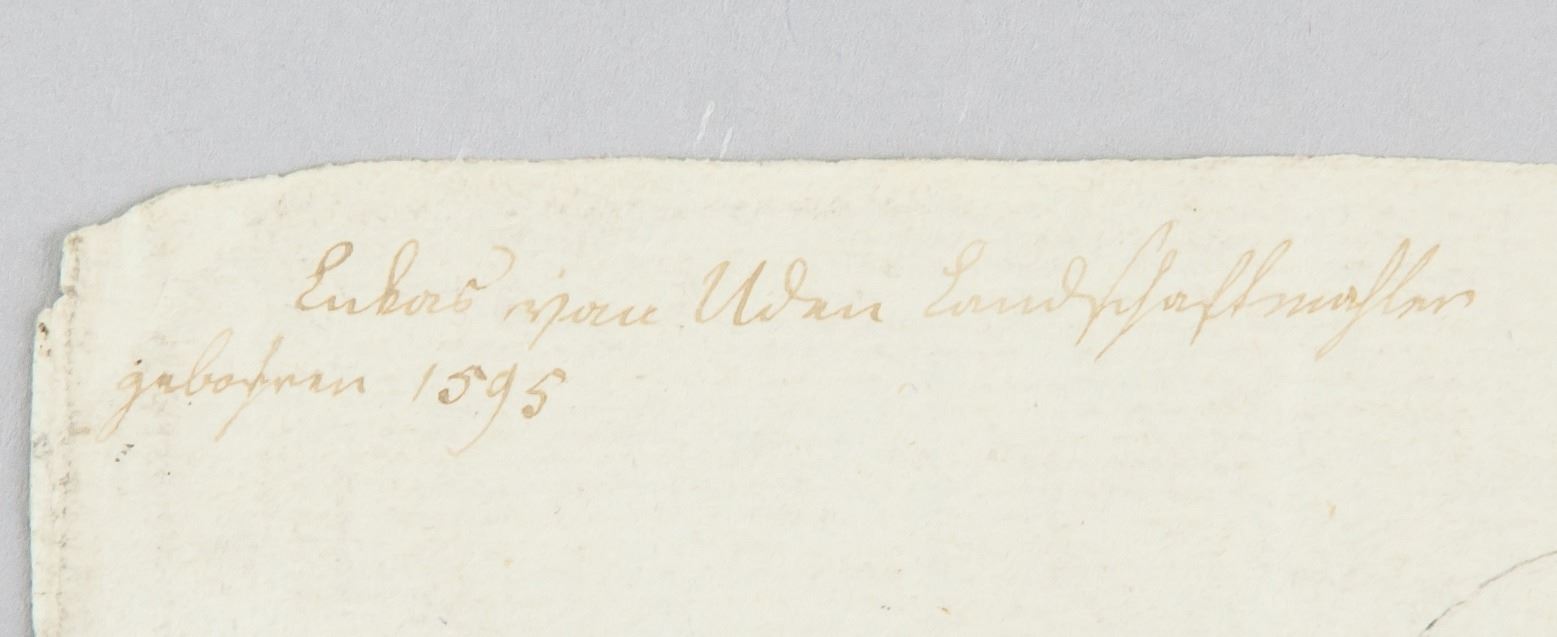 Lukas van Uden Landschaftmahler
gebohren 1595